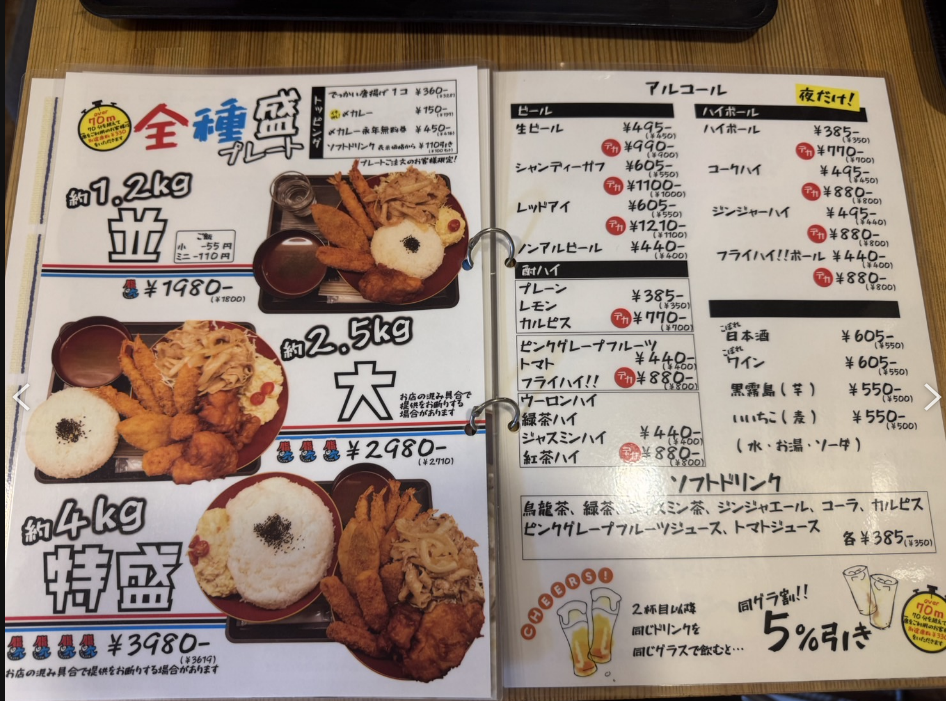 over
70m
全種盛
プレート
トッピング
でっかい唐揚げ1コ ¥360-
〆カレー ¥150-
〆カレー永年無料券 ¥450-
ソフトドリンク 表示価格から ¥110引き
プレートご注文のお客様限定!
約1.2kg
並
ご飯
小 -55円
ミニ -110円
¥1980-
(¥1800)
約2.5kg
大
お店の混み具合で
提供をお断りする
場合があります
¥2980-
(¥2710)
約4kg
特盛
¥3980-
(¥3619)
お店の混み具合で提供をお断りする場合があります
アルコール
夜だけ!
ビール
生ビール ¥495-
(¥450)
デカ ¥990-
(¥900)
シャンディーガフ ¥605-
(¥550)
デカ ¥1100-
(¥1000)
レッドアイ ¥605-
(¥550)
デカ ¥1210-
(¥1100)
ノンアルビール ¥440-
(¥400)
酎ハイ
プレーン
レモン ¥385-
(¥350)
カルピス デカ ¥770-
(¥700)
ピンクグレープフルーツ
トマト ¥440-
(¥400)
フライハイ!! デカ ¥880-
(¥800)
ウーロンハイ
緑茶ハイ
ジャスミンハイ ¥440-
(¥400)
紅茶ハイ デカ ¥880-
(¥800)
ハイボール
ハイボール ¥385-
(¥350)
デカ ¥770-
(¥700)
コークハイ ¥495-
(¥450)
デカ ¥880-
(¥800)
ジンジャーハイ ¥495-
(¥440)
デカ ¥880-
(¥800)
フライハイ!!ボール ¥440-
(¥400)
デカ ¥880-
(¥800)
こぼれ
日本酒 ¥605-
(¥550)
こぼれ
ワイン ¥605-
(¥550)
黒霧島(芋) ¥550-
(¥500)
いいちこ(麦) ¥550-
(¥500)
(水・お湯・ソーダ)
ソフトドリンク
烏龍茶、緑茶、ジャスミン茶、ジンジャエール、コーラ、カルピス
ピンクグレープフルーツジュース、トマトジュース
各¥385-
(¥350)
CHEERS!
2杯目以降
同じドリンクを
同じグラスで飲むと…
同グラ割!!
5%引き
over
70m